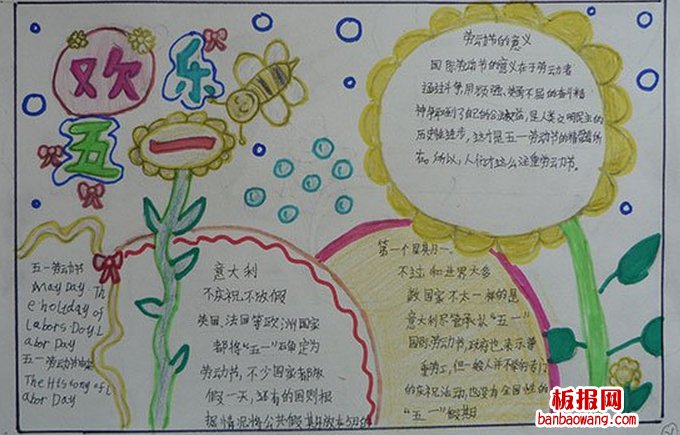 欢乐
五一
劳动节的意义
国际劳动节的意义在于劳动者
通过斗争,用顽强、英勇不屈的奋斗精
神,争取到了自己的合法权益,是人类文明民主的
历史性进步,这才是五一劳动节的精髓所
在。所以,人们才这么注重劳动节。
五一劳动节
May Day Th
e holiday of
Labors Day L
abor Day
五一劳动节
The History of L
abor Day
意大利
不庆祝不放假
英国、法国等欧洲国家
都将“五一”确定为
劳动节,不少国家都放
假一天,还有的国则根
据情况将公共假期放在5月的
第一个星期一。
不过,和世界大多
数国家不太一样的是
意大利尽管承认“五一”
国际劳动节,政府也表示尊
重劳工,但一般人并不举行专门
的庆祝活动,也没有全国性的
“五一”假期
板报网
banbaowang.com